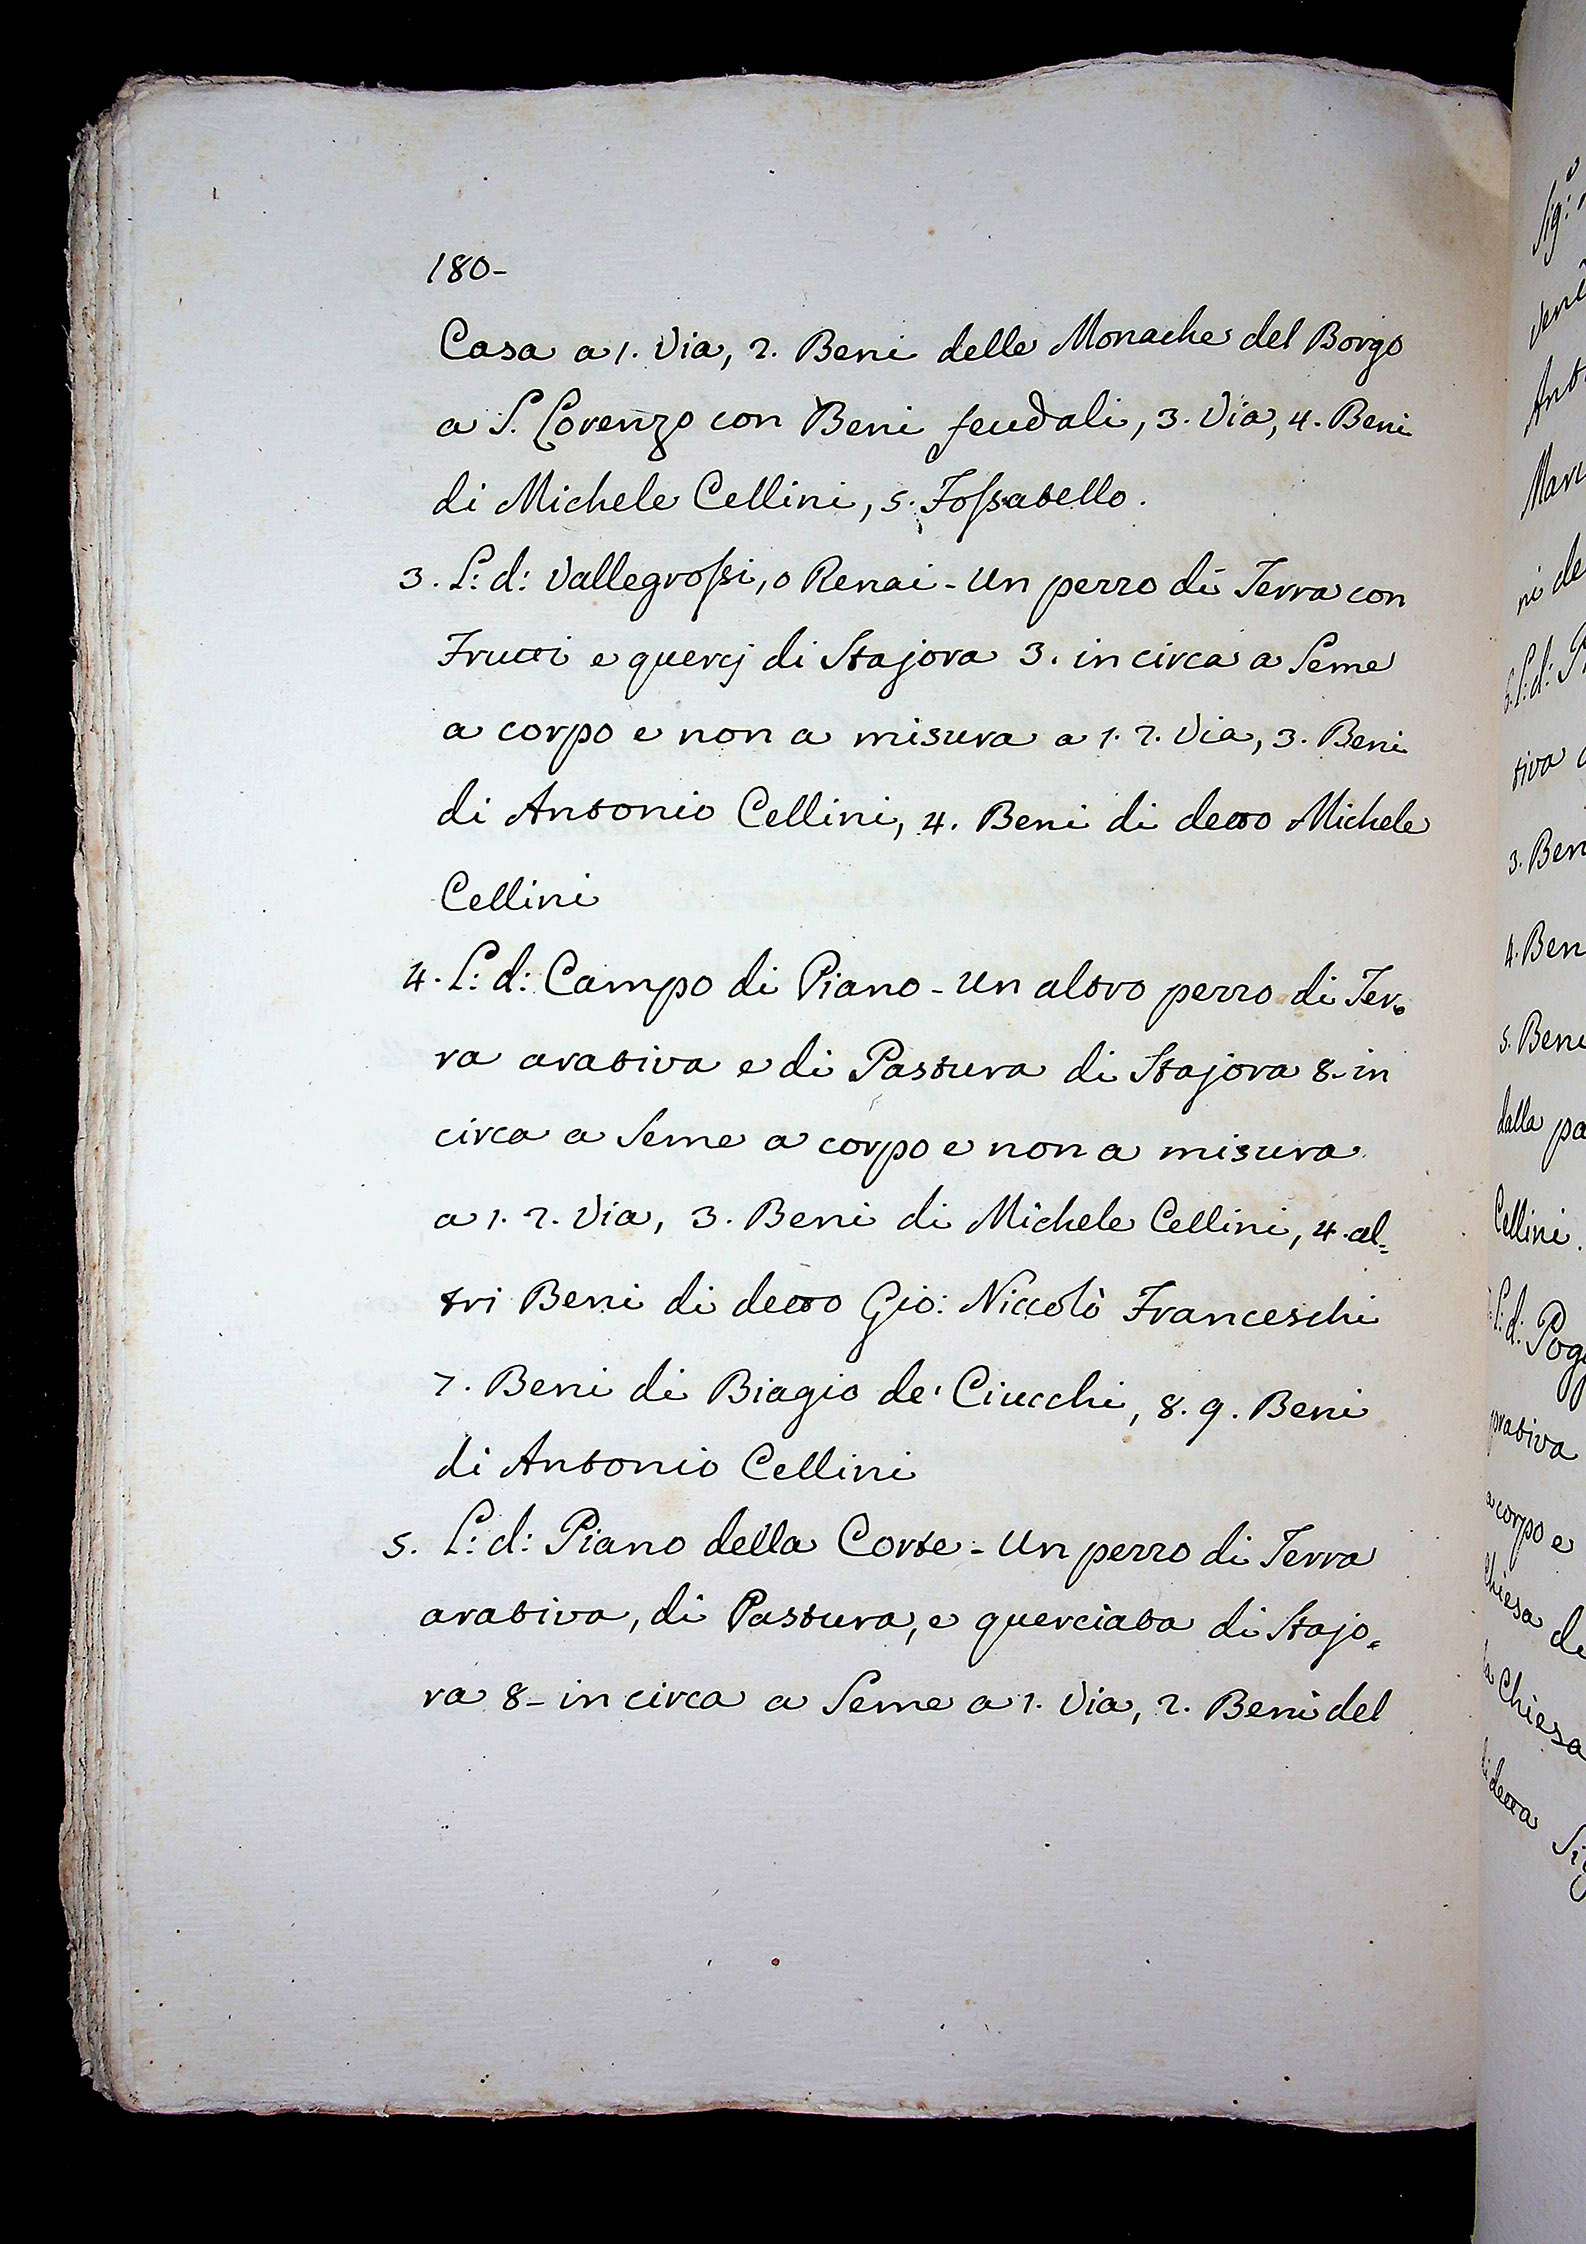 180-
Casa a 1. Via, 2. Beni delle Monache del Borgo
a S. Lorenzo con Beni feudali, 3. Via, 4. Beni
di Michele Cellini, 5. Fossatello.
3. L: d: Vallegrossi, o Renai - Un pezzo di Terra con
Frutti e quercj di Stajora 3. in circa a Seme
a corpo e non a misura a 1. 2. Via, 3. Beni
di Antonio Cellini, 4. Beni di detto Michele
Cellini
4. L: d: Campo di Piano - Un altro pezzo di Ter=
ra arativa e di Pastura di Stajora 8- in
circa a Seme a corpo e non a misura
a 1. 2. Via, 3. Beni di Michele Cellini, 4. al=
tri Beni di detto Gio: Niccolò Franceschi
7. Beni di Biagio de' Ciucchi, 8. 9. Beni
di Antonio Cellini
5. L: d: Piano della Corte - Un pezzo di Terra
arativa, di Pastura, e querciata di Stajo=
ra 8- in circa a Seme a 1. Via, 2. Beni del
Sig:
Mari
ni de
L: d:
tiva
3. Ben
4. Ben
5. Beni
dalla pa
Cellini.
L: d: Pogg
arativa
a corpo e
Chiesa de
la Chiesa
di detta Sig